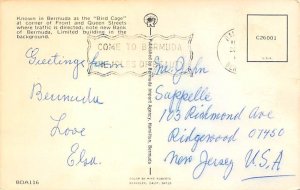 Known in Bermuda as the "Bird Cage"
at corner of Front and Queen Streets
where traffic it directed; note new Bank
of Bermuda, Limited building in the
background.
Greetings from
Bermuda
Love
Elsa.
BDA116
COME TO BERMUDA
THE ISLES OF
C26001
Mr. John
Sappelle
103 Richmond Ave
Ridgewood 07450
New Jersey U.S.A
COLOR BY MIKE ROBERTS
BERKELEY, CALIF. 94710